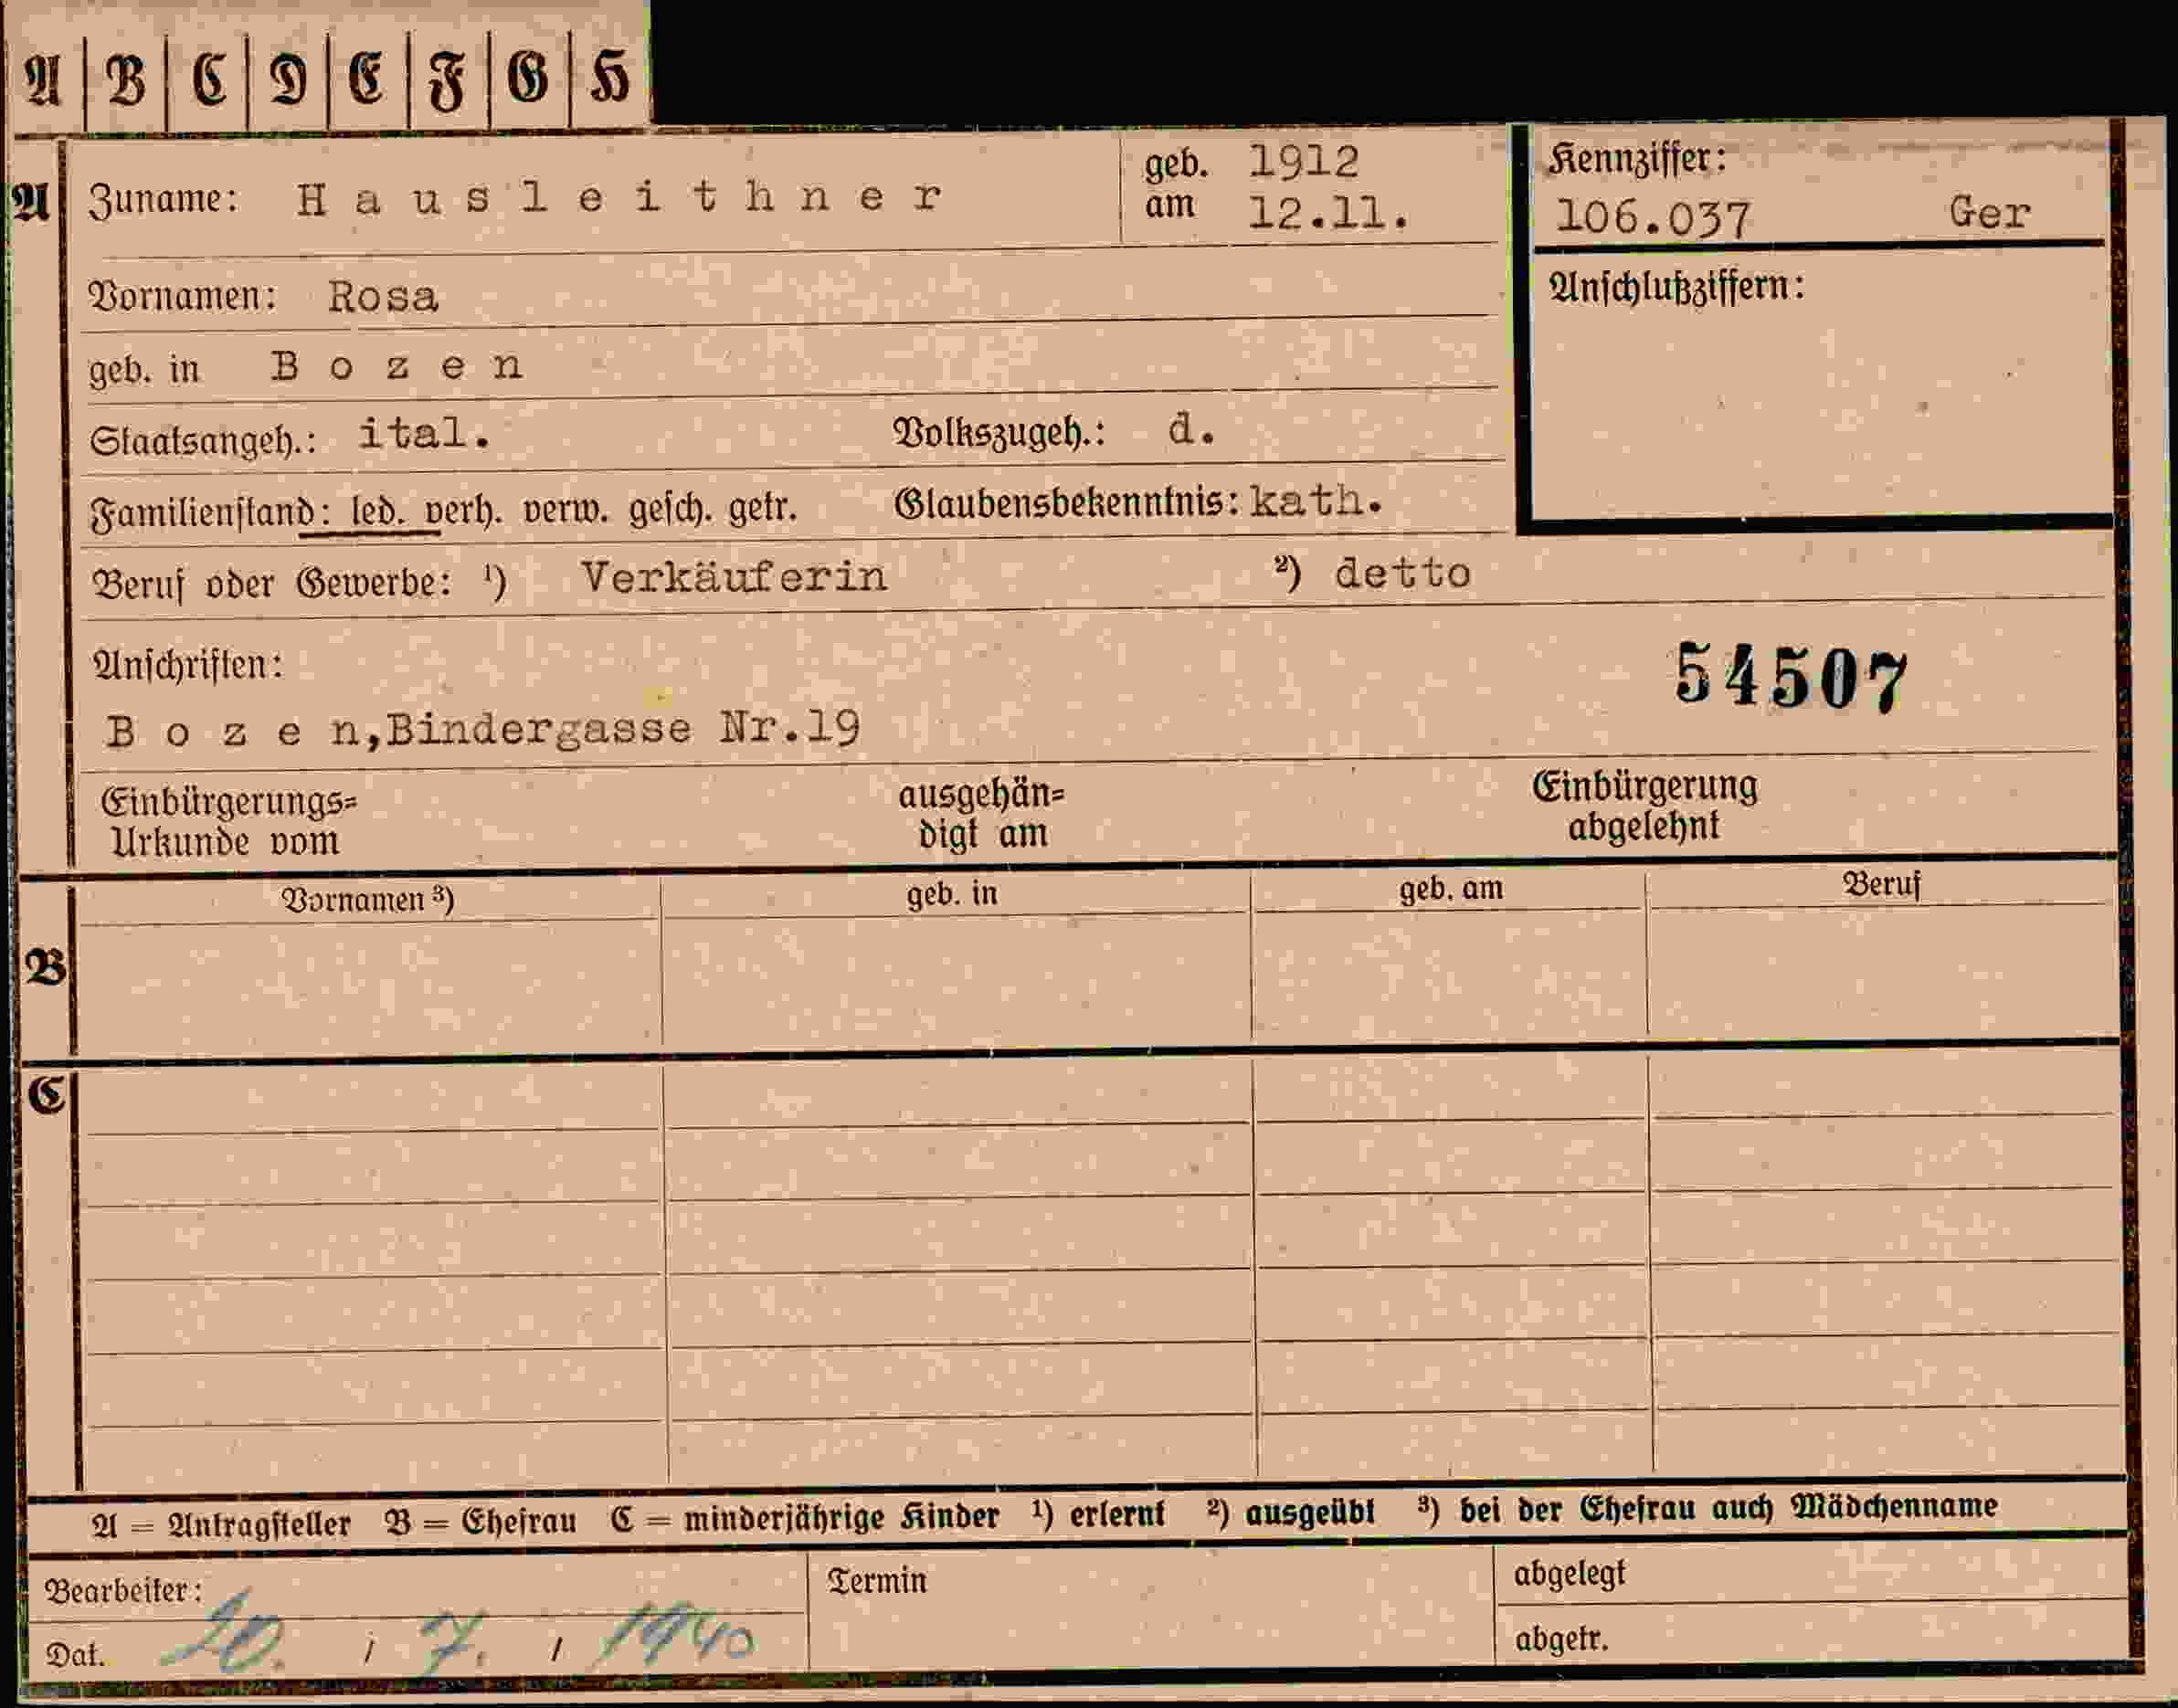 A B C D E F G H
A
Zuname: Hausleithner
geb. am 1912 12.11.
Kennziffer:
106.037 Ger
Vornamen: Rosa
Anschlußziffern:
geb. in Bozen
Staatsangeh.: ital. Volkszugeh.: d.
Familienstand: led. verh. verw. gesch. getr. Glaubensbekenntnis: kath.
Beruf oder Gewerbe: ¹) Verkäuferin ²) detto
Anschriften:
54507
Bozen,Bindergasse Nr.19
Einbürgerungs= ausgehän= Einbürgerung
Urkunde vom digt am abgelehnt
Vornamen ³) geb. in geb. am Beruf
B
C
A = Antragsteller B = Ehefrau C = minderjährige Kinder ¹) erlernt ²) ausgeübt ³) bei der Ehefrau auch Mädchenname
Bearbeiter: Termin abgelegt
Dat. 20. / 7. / 1940 abgetr.